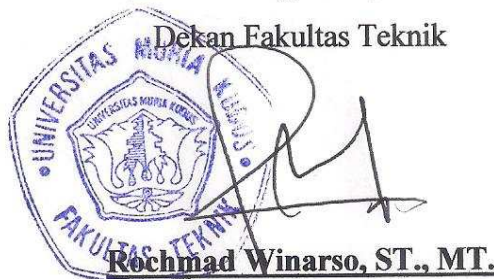 Dekan Fakultas Teknik
UNIVERSITAS MURIA KUDUS
UNIVERSITAS MURIA KUDUS
FAKULTAS TEKNIK
Rochmad Winarso, ST., MT.